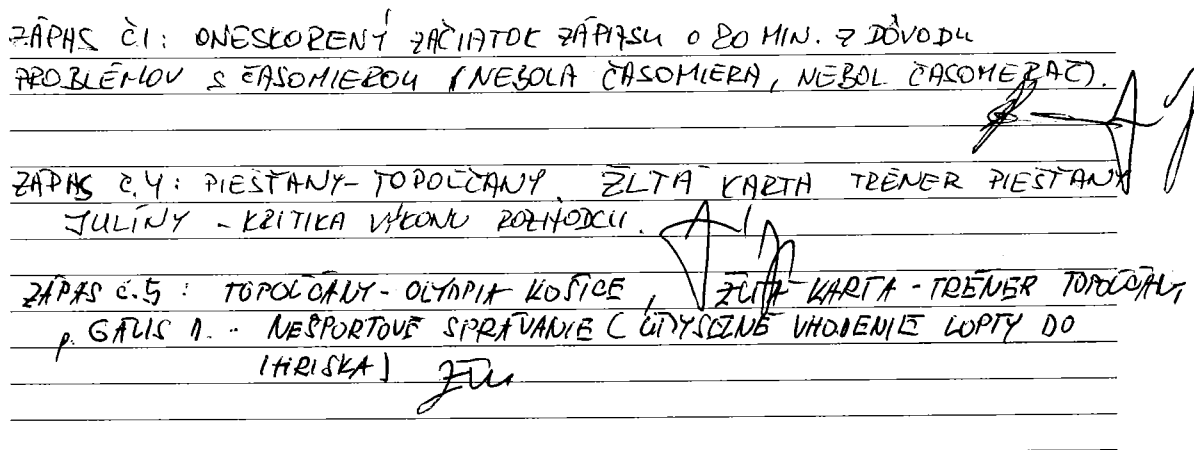 ZÁPAS Č1: ONESKORENÝ ZAČIATOK ZÁPASU O 80 MIN. Z DÔVODU
PROBLÉMOV S ČASOMIEROU (NEBOLA ČASOMIERA, NEBOL ČASOMERAČ).
ZÁPAS Č.4: PIEŠŤANY-TOPOĽČANY ŽLTÁ KARTA TRÉNER PIEŠŤANY
JULÍNY - KRITIKA VÝKONU ROZHODCU.
ZÁPAS Č.5: TOPOĽČANY-OLYMPIA KOŠICE, ŽLTÁ KARTA - TRÉNER TOPOĽČAN,
p. GÁLIS - NEŠPORTOVÉ SPRÁVANIE (ÚMYSELNÉ VHODENIE LOPTY DO
IHRISKA)